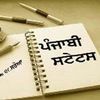 ਪੰਜਾਬੀ
ਸਟੇਟਸ